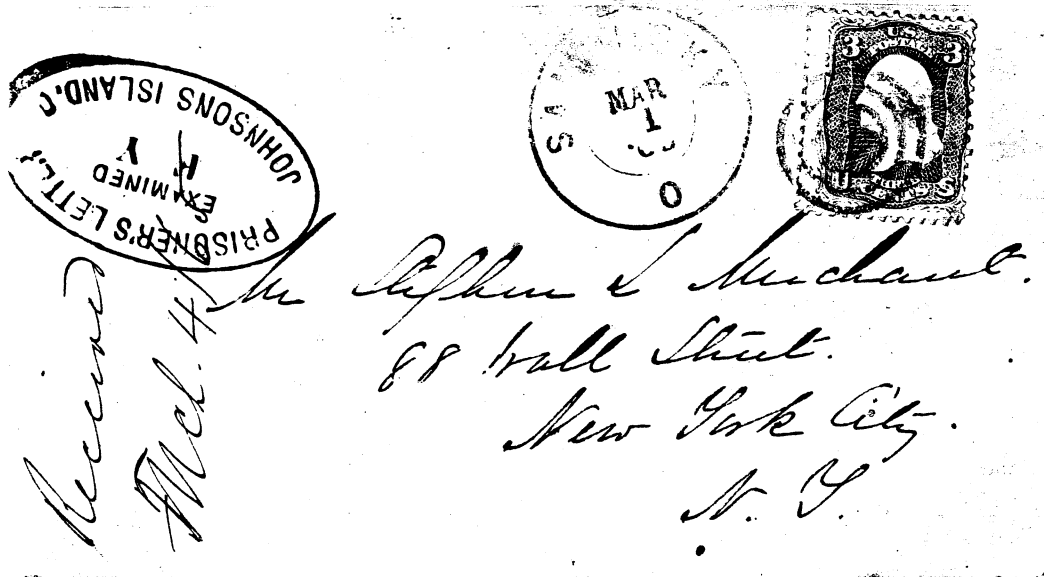 PRISONER'S LETTE
EXAMINED
JOHNSONS ISLAND, O
SANDUSKY
MAR
1
O
U.S
3 3
Mr Stephen L Merchant.
88 Wall Street.
New York City.
N. Y.
Received
Mch. 4